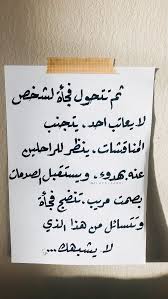 ثم تتحول فجأة لشخص
لا يعاتب احد، يتجنب
المناقشات، ينظر للراحلين
عنه بهدوء، ويستقبل الصدمات
بصمت مريب، تنضج فجأة
وتتسائل من هذا الذي
لا يشبهك...